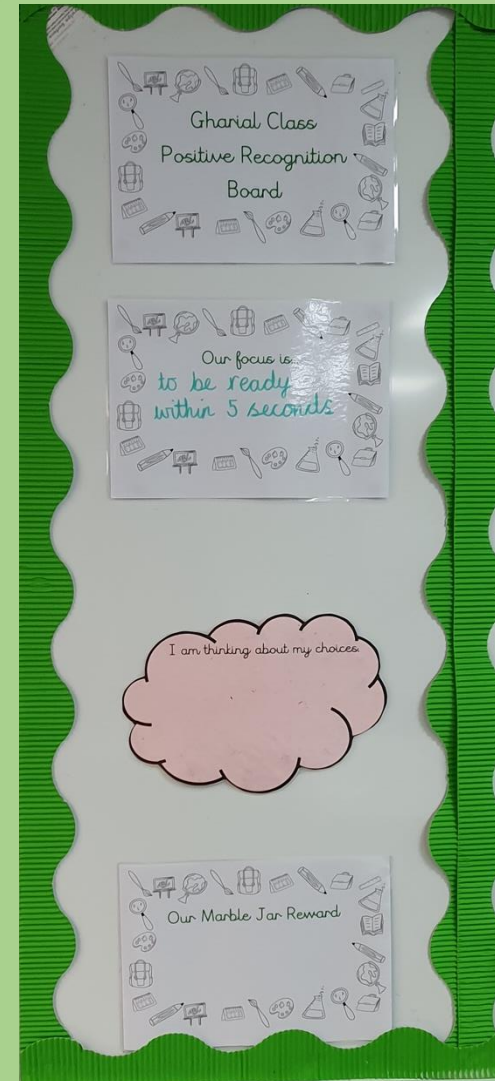 Gharial Class
Positive Recognition
Board
Our focus is...
to be ready
within 5 seconds
I am thinking about my choices.
Our Marble Jar Reward